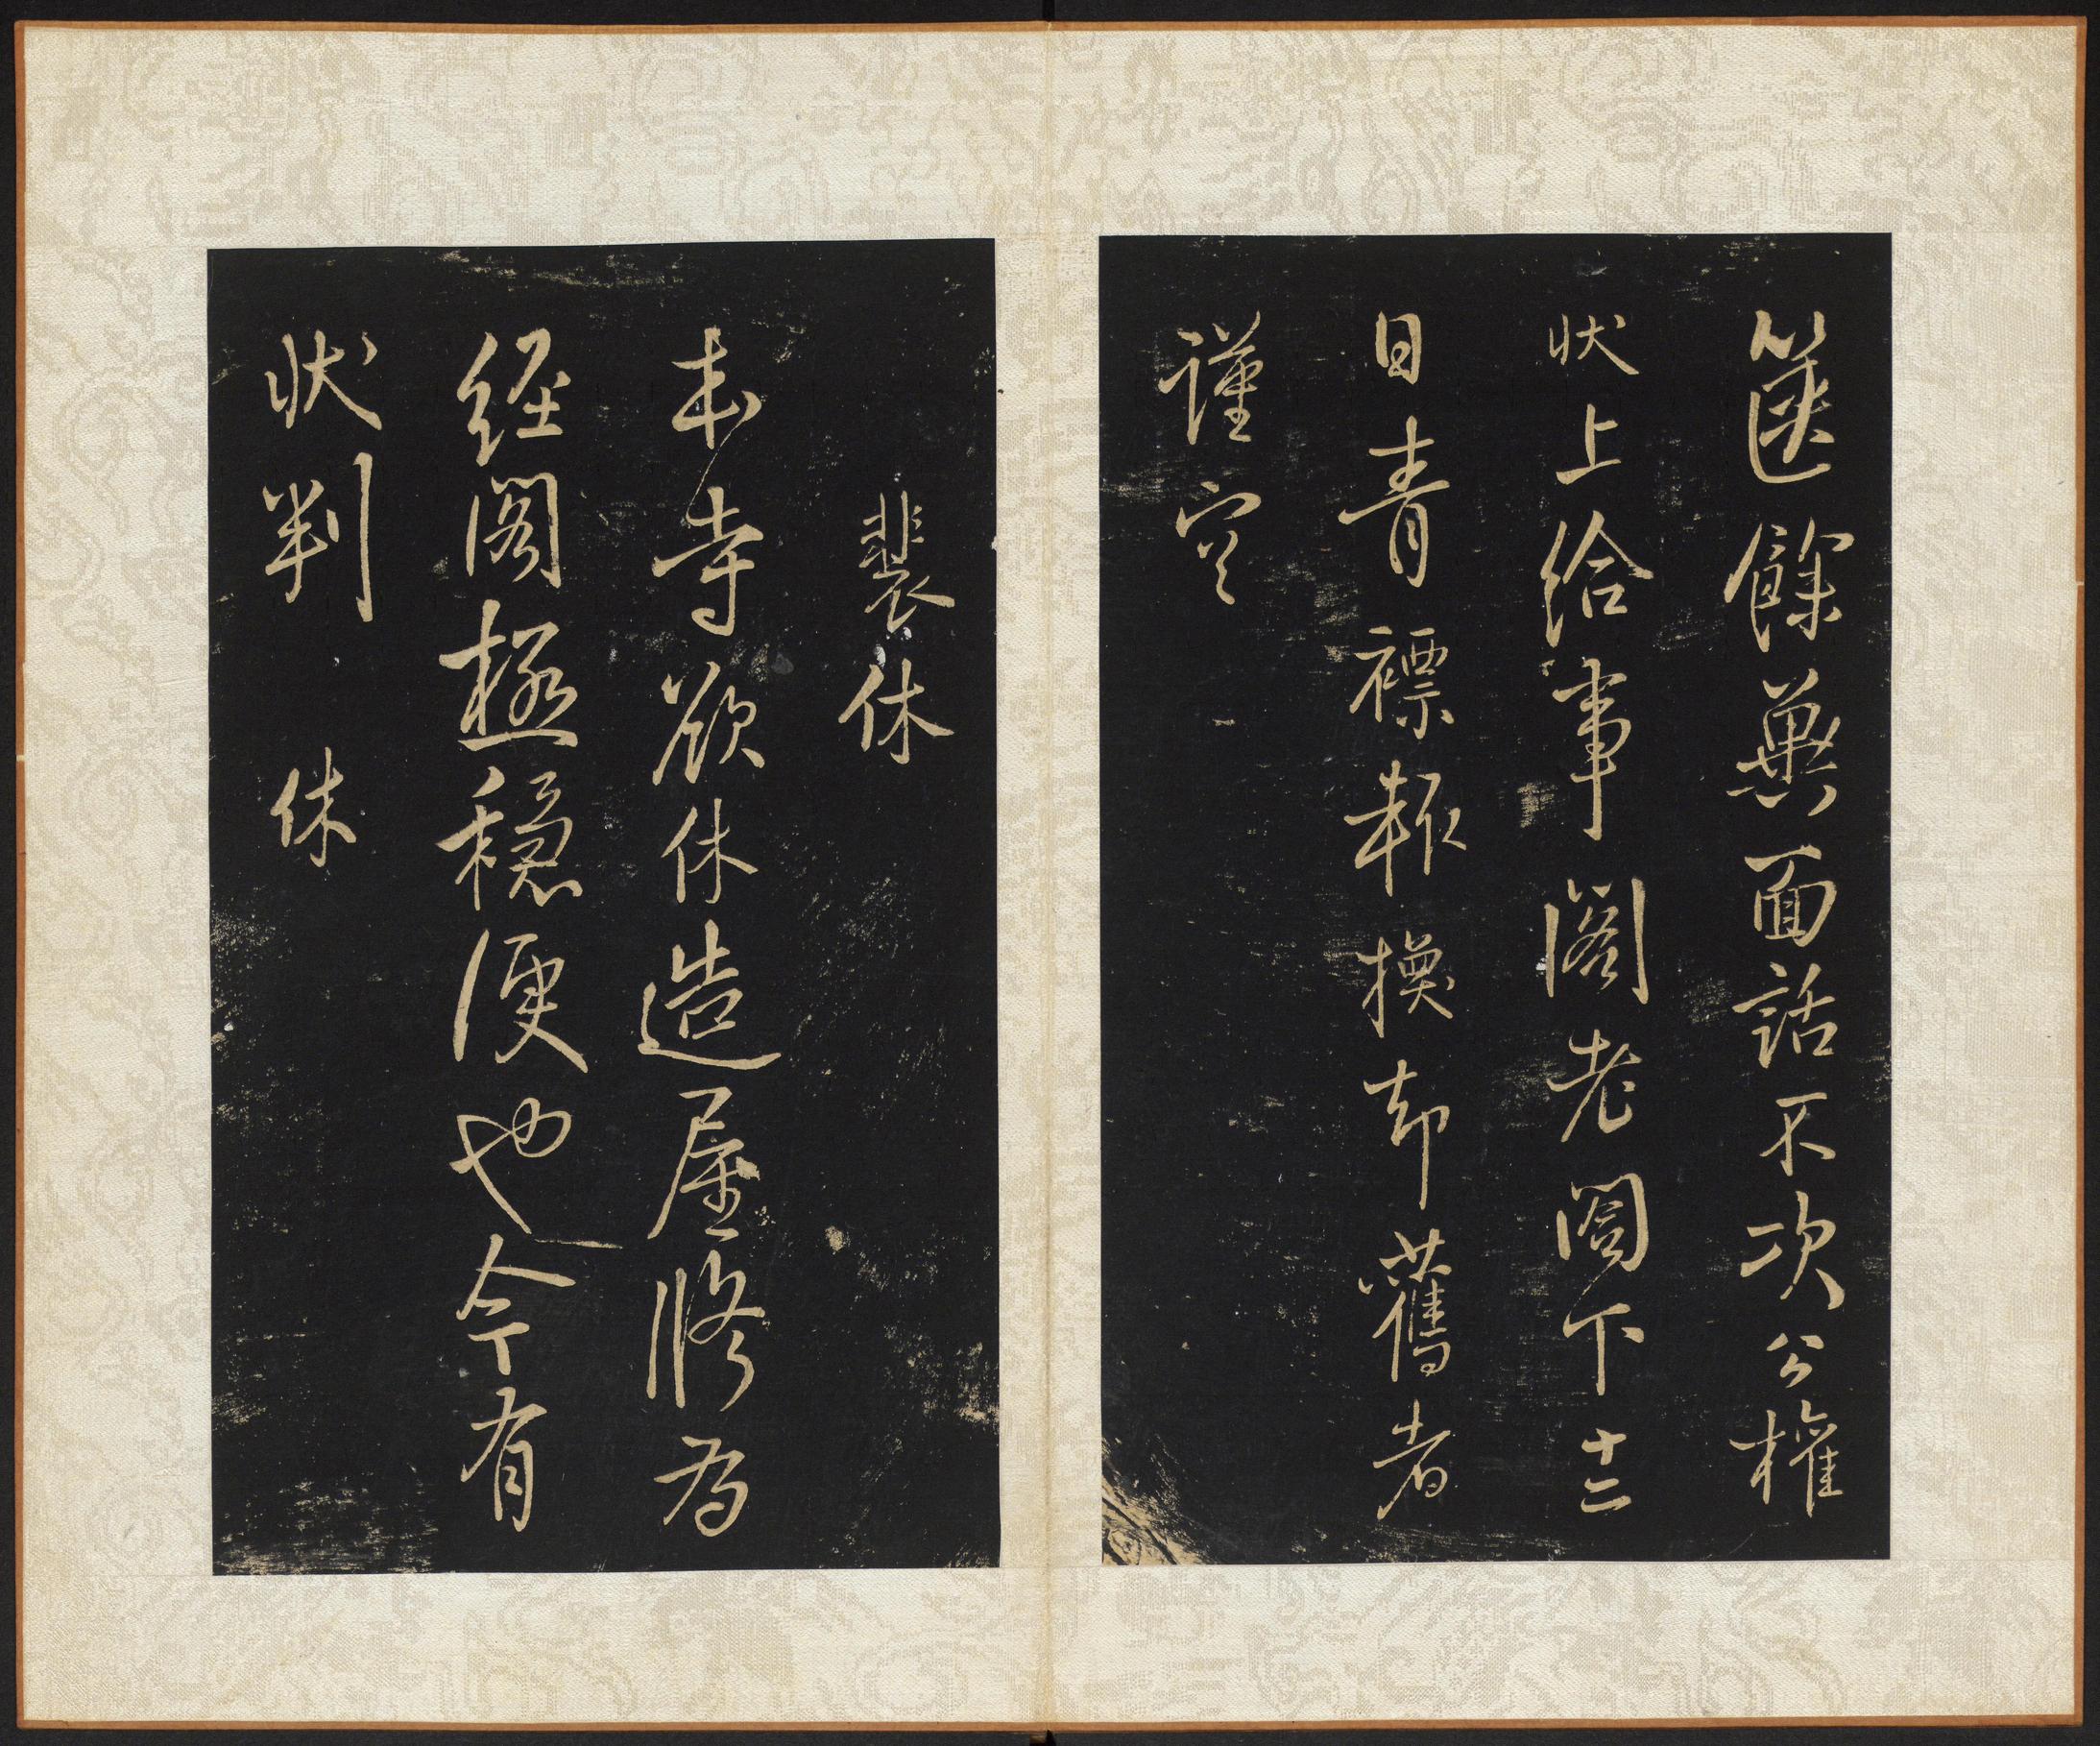 篋餘冀面話不次公權
狀上給事閣老閤下十二
日青褾輒換却舊者
謹空
裴休
本寺欲休造屋脩為
經閣極穩便也今有
狀判 休